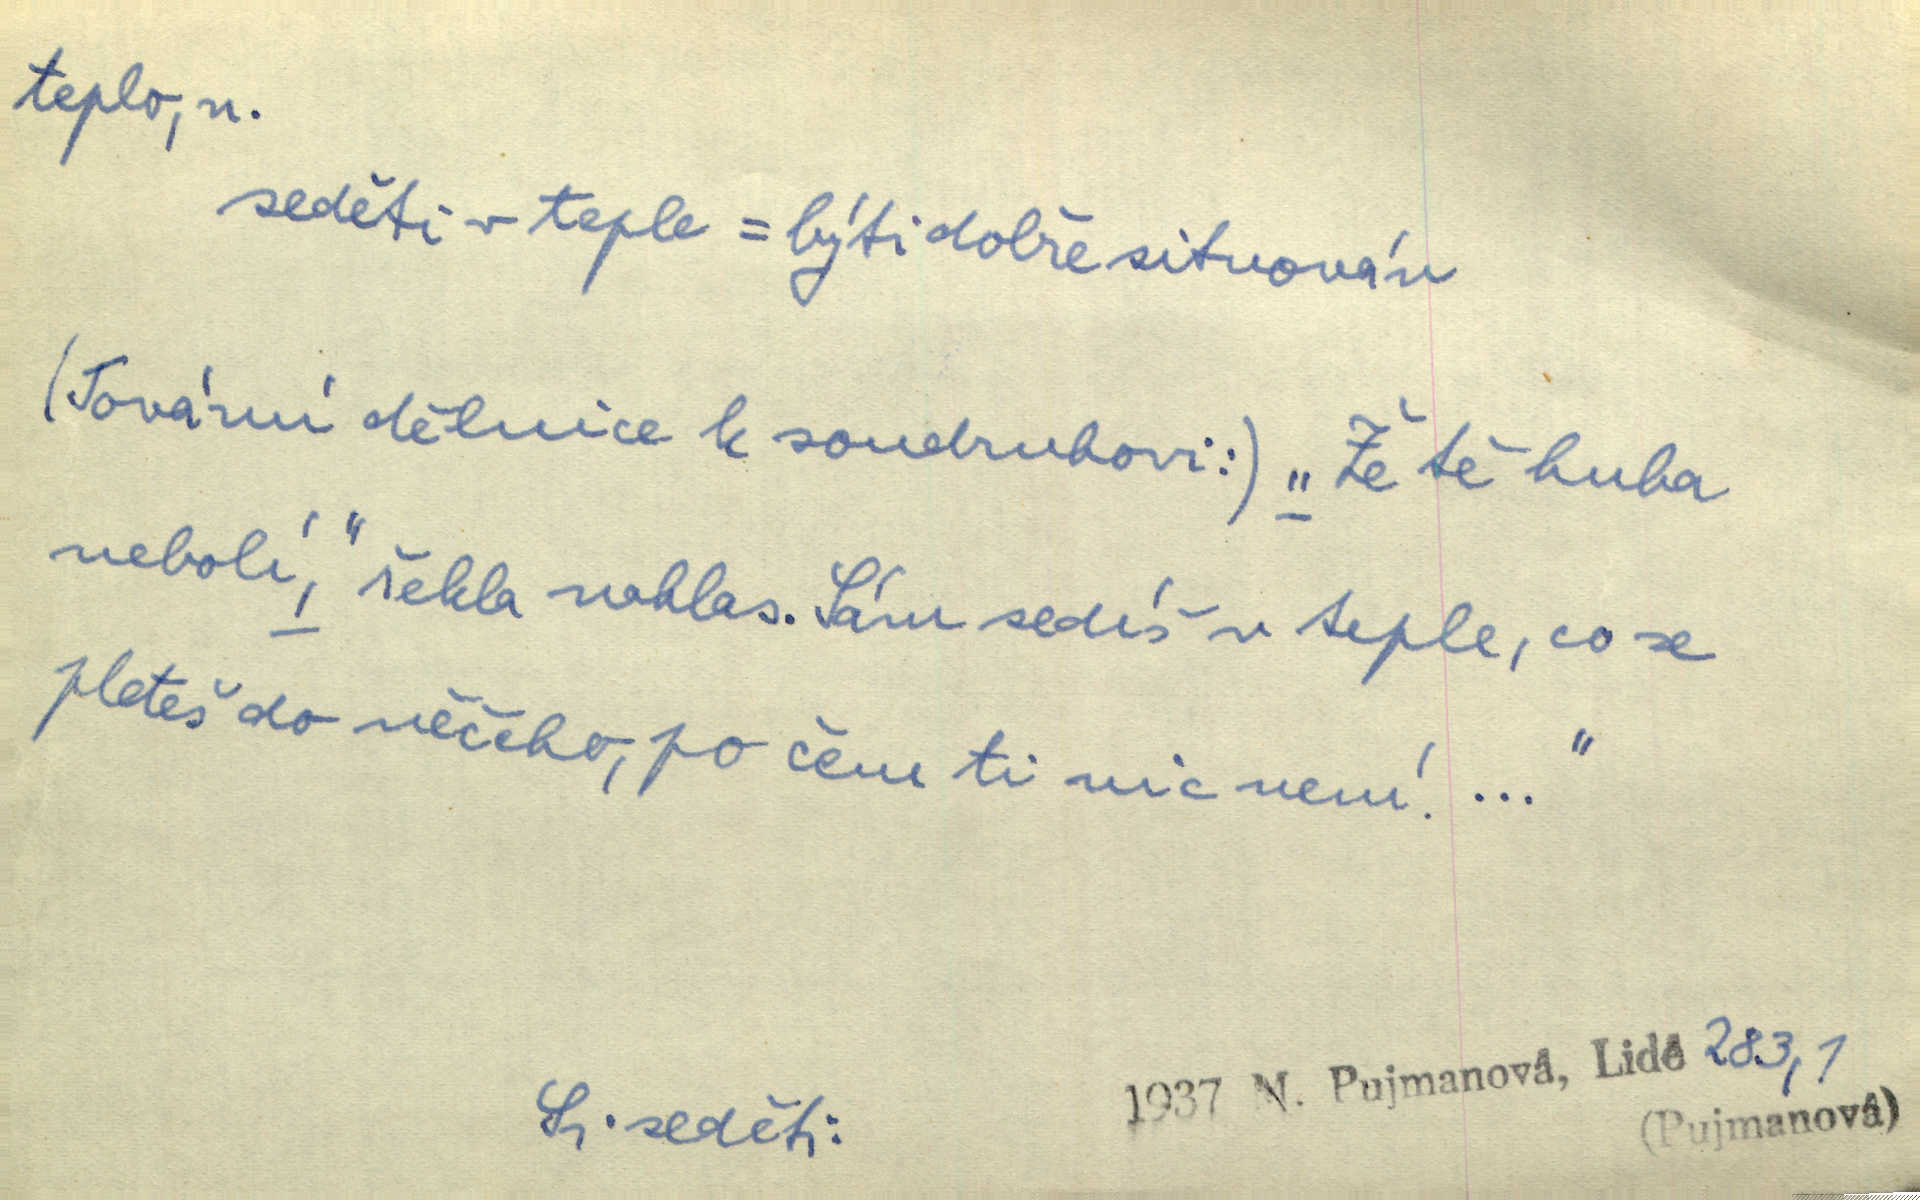 teplo, n.
seděti v teple = býti dobře situován
(Tovární dělnice k soudruhovi:) „Že tě huba
nebolí,“ řekla nahlas. Sám sedíš v teple, co se
pleteš do něčeho, po čem ti nic není! ...“
Sr. seděti
1937 M. Pujmanová, Lidé 283,1
(Pujmanová)